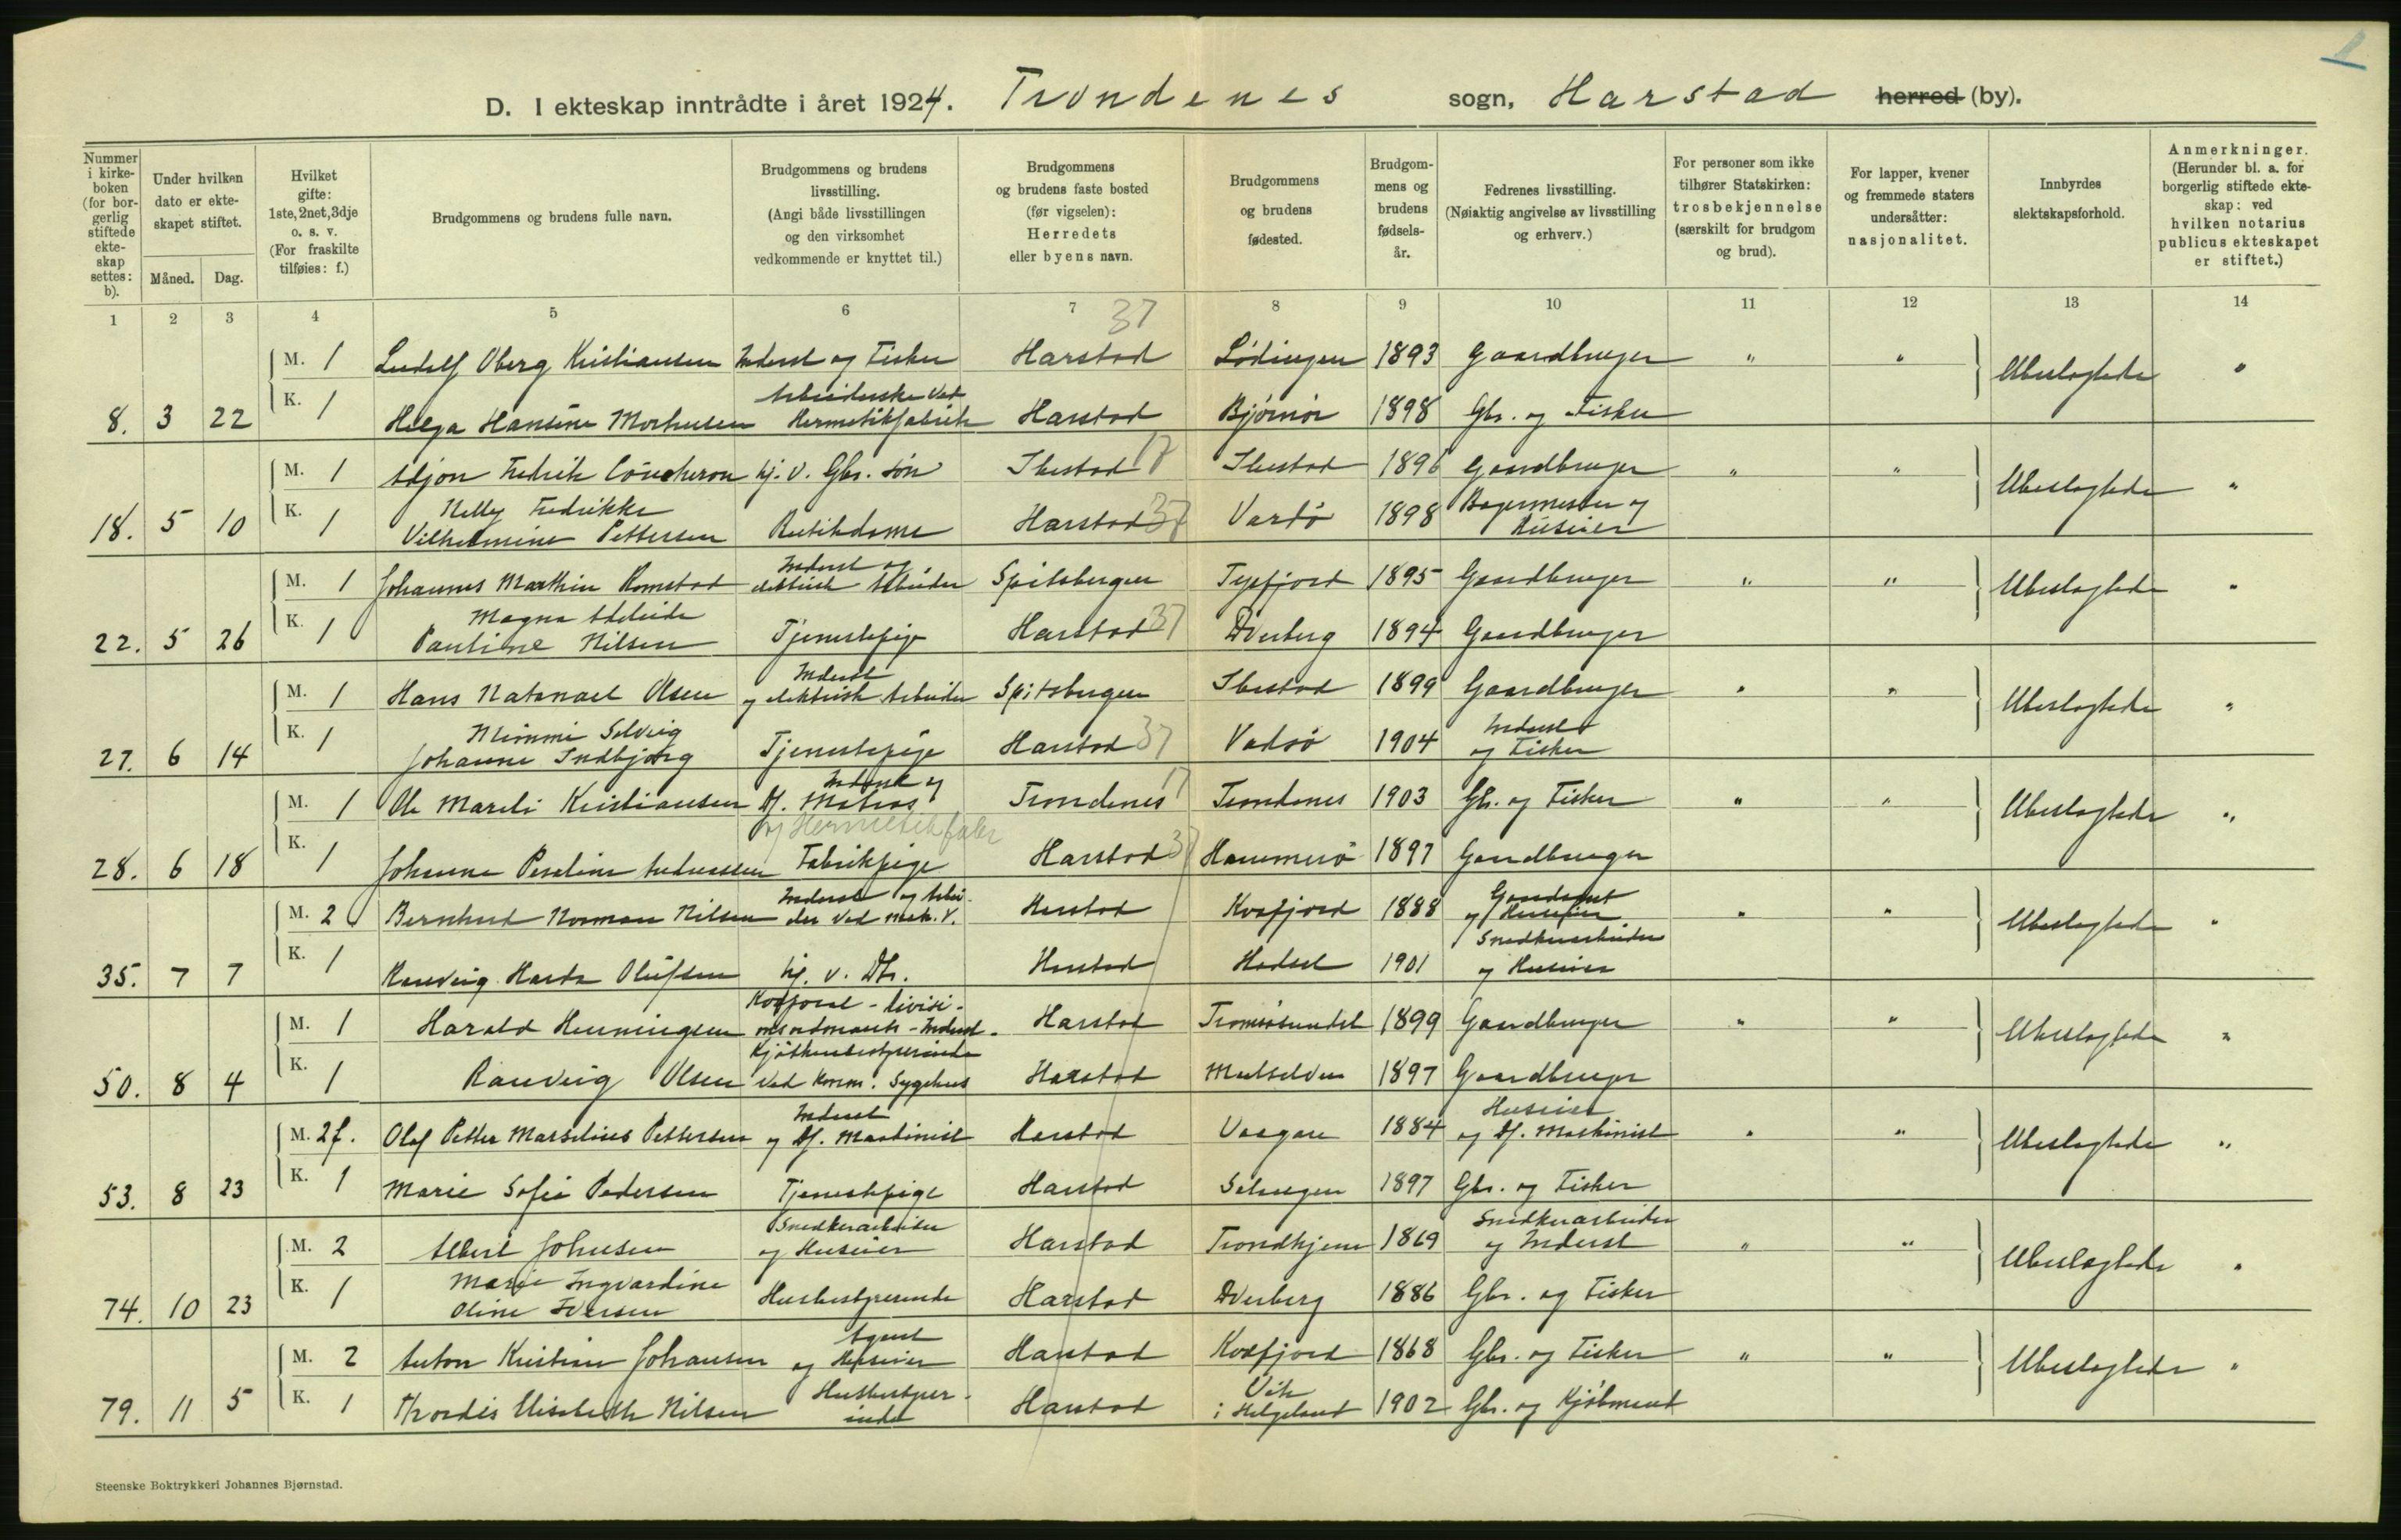 D. I ekteskap inntrådte i året 1924. Trondenes sogn, Harstad herred (by).
Nummer i kirke- boken (for bor- gerlig stiftede ekte- skap settes: b).
Under hvilken dato er ekte- skapet stiftet.
Måned. Dag.
Hvilket gifte: 1ste, 2net, 3dje o. s. v. (For fraskilte tilføies: f.)
Brudgommens og brudens fulle navn.
Brudgommens og brudens livsstilling. (Angi både livsstillingen og den virksomhet vedkommende er knyttet til.)
Brudgommens og brudens faste bosted (før vigselen): Herredets eller byens navn.
Brudgommens og brudens fødested.
Brudgom- mens og brudens fødsels- år.
Fedrenes livsstilling. (Nøiaktig angivelse av livsstilling og erhverv.)
For personer som ikke tilhører Statskirken: trosbekjennelse (særskilt for brudgom og brud).
For lapper, kvener og fremmede staters undersåtter: nasjonalitet.
Innbyrdes slektskapsforhold.
Anmerkninger. (Herunder bl. a. for borgerlig stiftede ekte- skap: ved hvilken notarius publicus ekteskapet er stiftet.)
1 2 3 4 5 6 7 8 9 10 11 12 13 14
37
M. 1 Ludolf Oberg Kristiansen Inderst og Fisker Harstad Lødingen 1893 Gaardbruger " " Ubeslægtede "
Arbeiderske ved
8. 3 22 K. 1 Helga Hansine Mortensen Hermetikfabrik Harstad Bjørnør 1898 Gbr. og Fisker
M. 1 Fredrik hj. v. Gbr. søn Ibestad 17 Ibestad 1896 Gaardbruger " " Ubeslægtede "
Nelly Fredrikke Bagermester og
18. 5 10 K. 1 Vilhelmine Pettersen Butikdame Harstad 37 Vardø 1898 Huseier
Inderst og
M. 1 Johannes Marthin Romstad elektrisk Arbeider Spitsbergen Tysfjord 1895 Gaardbruger " " Ubeslægtede "
Magna Adeleide
22. 5 26 K. 1 Pauline Nilsen Tjenestepige Harstad 37 Dverberg 1894 Gaardbruger
Inderst
M. 1 Hans Natanael Olsen og elektrisk Arbeider Spitsbergen Ibestad 1899 Gaardbruger " " Ubeslægtede "
Mimmi Solveig Inderst
27. 6 14 K. 1 Johanne Indbjørg Tjenestepige Harstad 37 Vadsø 1904 og Fisker
Inderst og
M. 1 Ole Mareli Kristiansen Df. Matros Trondenes 17 Trondenes 1903 Gbr. og Fisker " " Ubeslægtede "
v/ Hermetikfabr
28. 6 18 K. 1 Johanna Peseline Andreassen Fabrikpige Harstad 37 Hammerø 1897 Gaardbruger
Inderst og Arbei- Gaardsgut
M. 2 Bernhard Norman Nilsen der ved mek. V. Harstad Kvæfjord 1888 og Huseier " " Ubeslægtede "
Snedkerarbeider
35. 7 7 K. 1 Ranveig Harda Olufsen hj. v. Dtr. Harstad Hadsel 1901 og Huseier
Korporal - divisi-
M. 1 Harald Henningsen onsordonants - Inderst. Harstad Tromsøsundet 1899 Gaardbruger " " Ubeslægtede "
Kjøkkenbestyrerinde
50. 8 4 K. 1 Ranveig Olsen ved komm. Sygehus Harstad Maalselven 1897 Gaardbruger
Inderst Huseier
M. 2f. Olaf Petter Marselius Pettersen og Df. Maskinist Harstad Vaagan 1884 og Df. Maskinist " " Ubeslægtede "
53. 8 23 K. 1 Marie Sofie Pedersen Tjenestepige Harstad Salangen 1897 Gbr. og Fisker
Snedkerarbeider Snedkerarbeider
M. 2 Albert Johnsen og Huseier Harstad Trondhjem 1869 og Inderst " " Ubeslægtede "
Marie Ingvardine
74. 10 23 K. 1 Oline Iversen Husbestyrerinde Harstad Dverberg 1886 Gbr. og Fisker
Agent
M. 2 Anton Kristian Johansen og Huseier Harstad Kvæfjord 1868 Gbr. og Fisker " " Ubeslægtede "
Husbestyrer- Vik
79. 11 5 K. 1 Thordis Elisabeth Nilsen inde Harstad i Helgeland 1902 Gbr. og Kjøbmand
Steenske Boktrykkeri Johannes Bjørnstad.